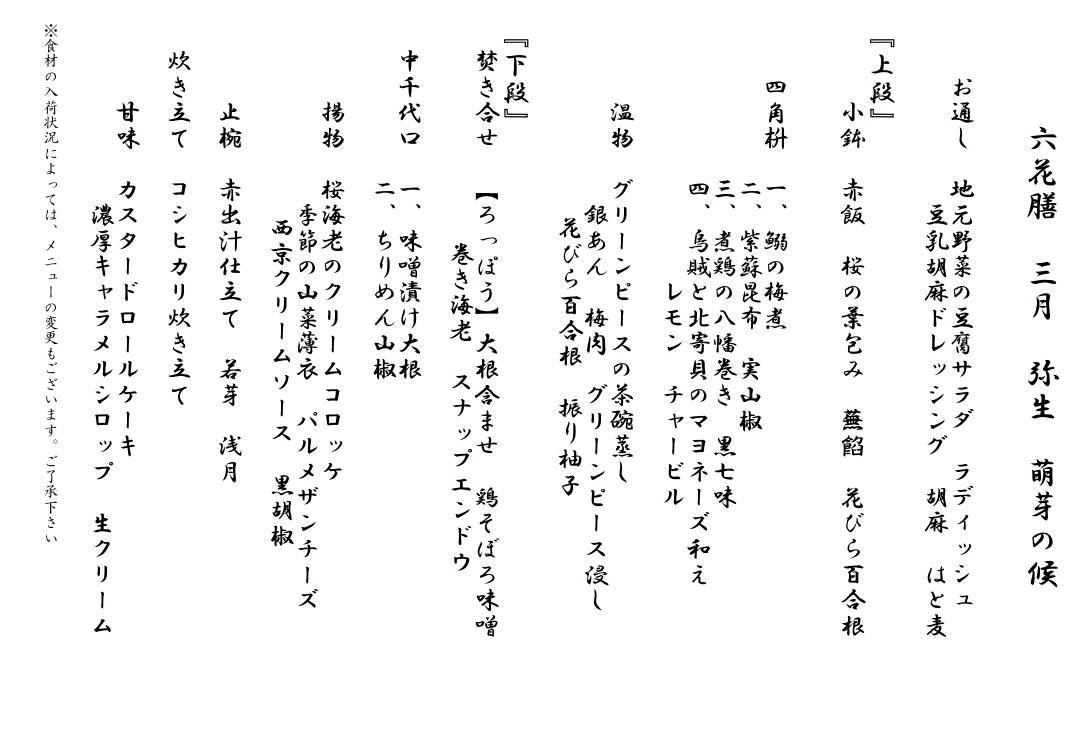 六花膳　三月　弥生　萌芽の候
お通し　地元野菜の豆腐サラダ　ラディッシュ
豆乳胡麻ドレッシング　胡麻　はと麦
『上段』
小鉢　赤飯　桜の葉包み　蕪餡　花びら百合根
四角枡　一、鰯の梅煮
二、紫蘇昆布　実山椒
三、煮鶏の八幡巻き　黒七味
四、烏賊と北寄貝のマヨネーズ和え
レモン　チャービル
温物　グリーンピースの茶碗蒸し
銀あん　梅肉　グリーンピース浸し
花びら百合根　振り柚子
『下段』
焚き合せ　【ろっぽう】大根含ませ　鶏そぼろ味噌
巻き海老　スナップエンドウ
中千代口　一、味噌漬け大根
二、ちりめん山椒
揚物　桜海老のクリームコロッケ
季節の山菜薄衣　パルメザンチーズ
西京クリームソース　黒胡椒
止椀　赤出汁仕立て　若芽　浅月
炊き立て　コシヒカリ炊き立て
甘味　カスタードロールケーキ
濃厚キャラメルシロップ　生クリーム
※食材の入荷状況によっては、メニューの変更もございます。ご了承下さい